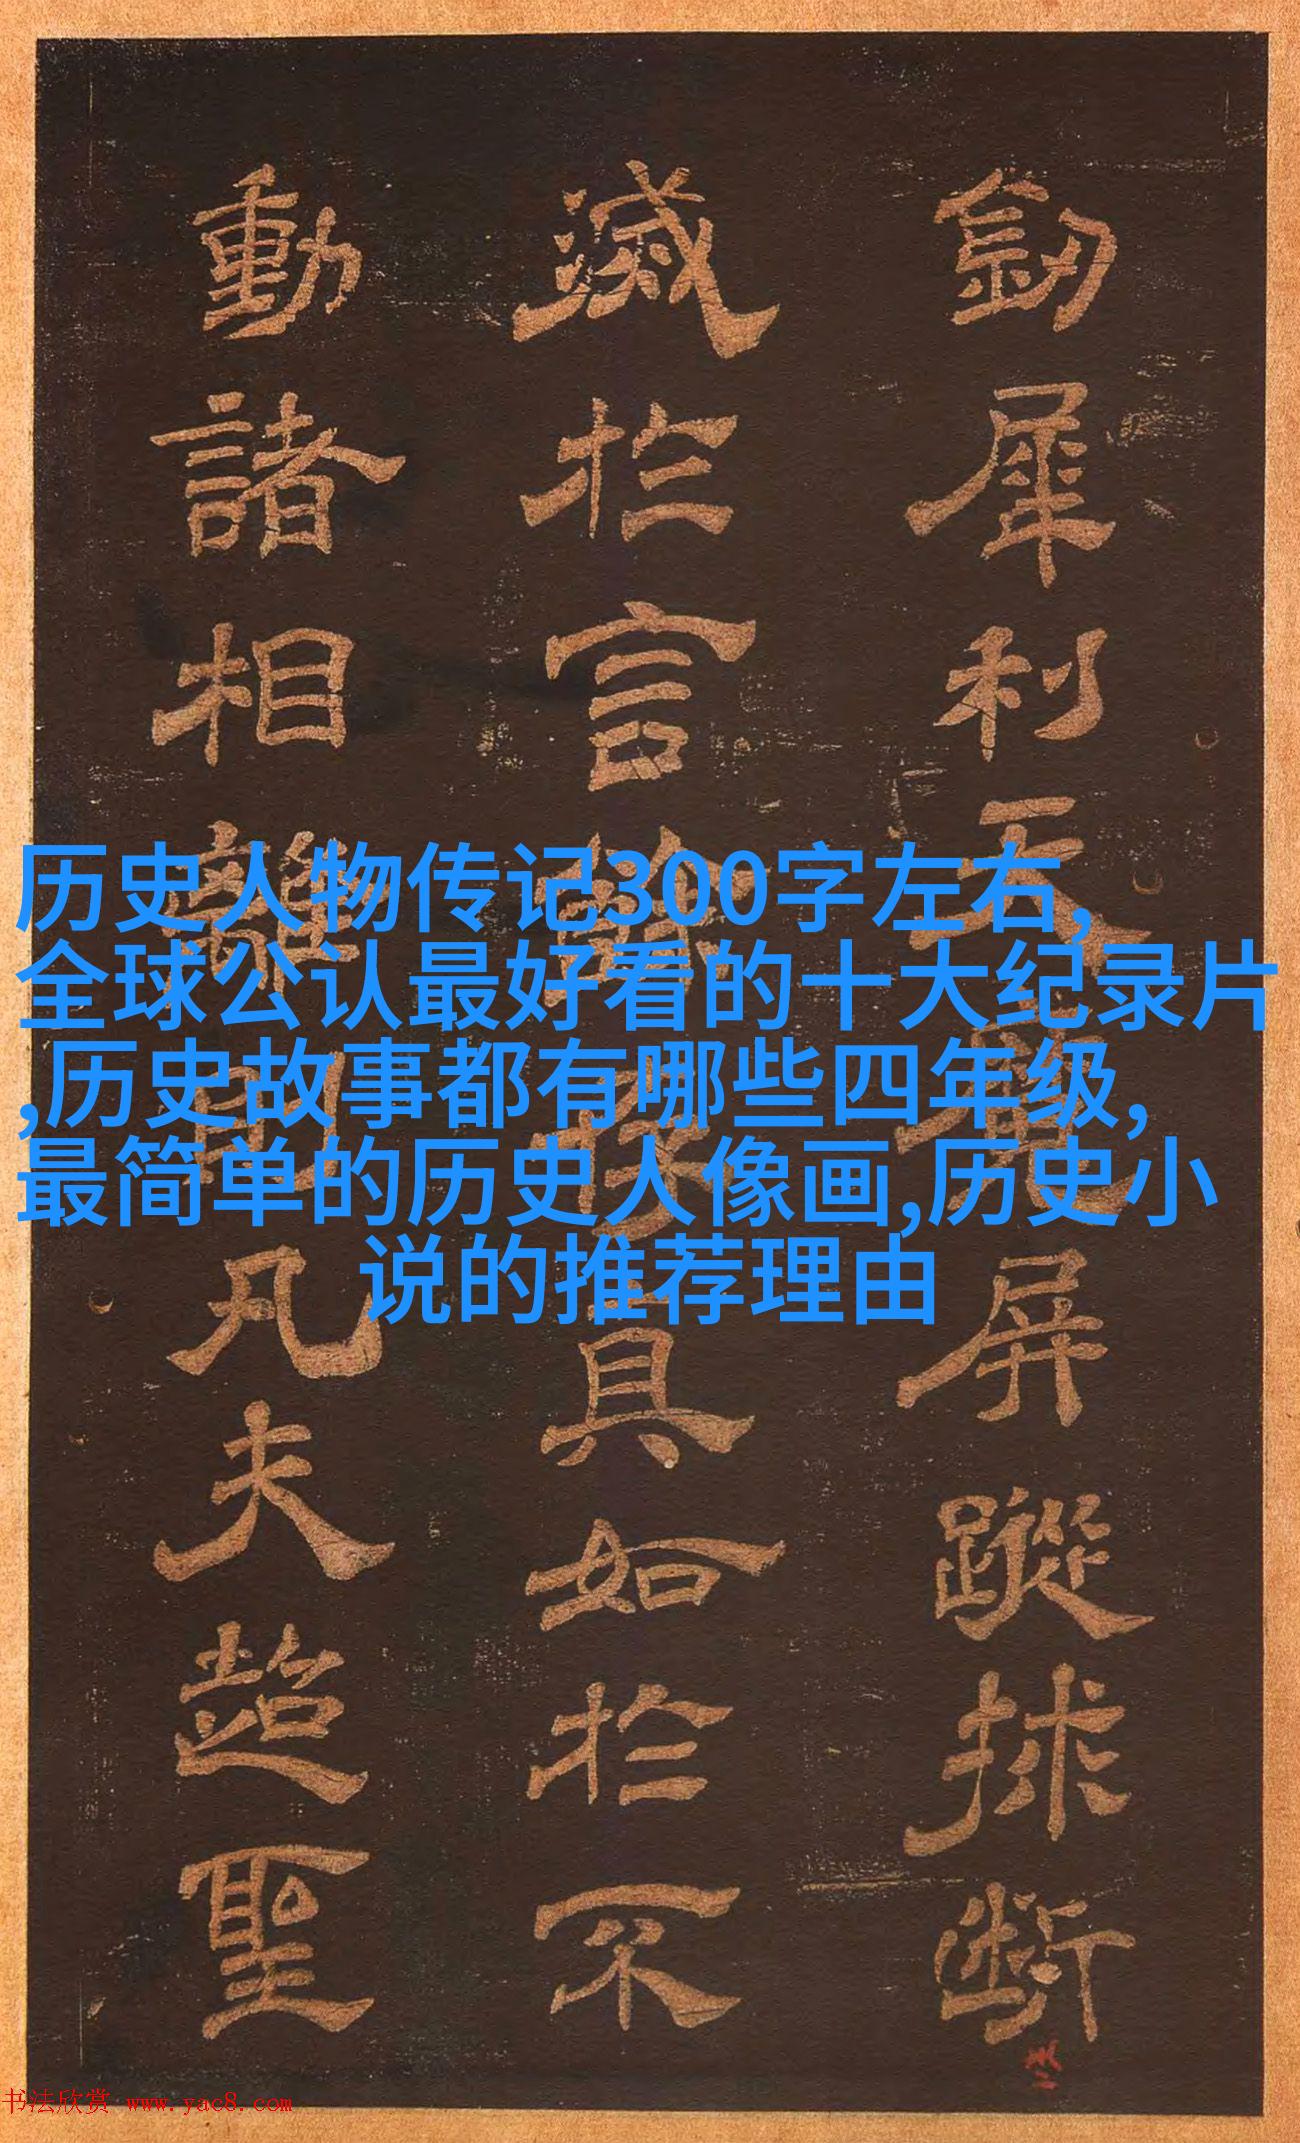 釼犀利天魔屏蹤斷
滅於言真如於不
動諸相離凡夫超聖
历史人物传记300字左右,
全球公认最好看的十大纪录片
,历史故事都有哪些四年级,
最简单的历史人像画,历史小
说的推荐理由
书法欣赏 www.yac8.com